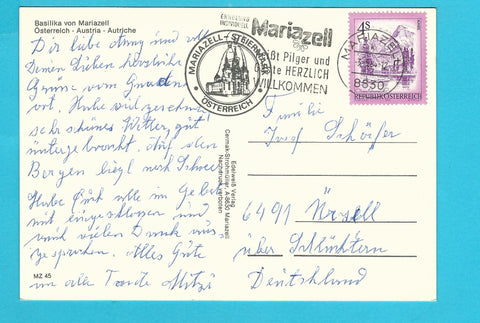 Basilika von Mariazell
Österreich - Austria - Autriche
Dir liebe und
Deinen Lieben herzliche
Grüße vom Gnaden
ort. Habe viel
sehr schönes Wetter, gut
untergebracht. Auf den
Bergen liegt noch Schnee
Habe Euch alle im Gebet
mit eingeschlossen und
und vielen Dank
gesprochen. Alles Gute
in alter Tante Mitzi
MZ 45
Edelweiß Verlag
Cermak-Strohmüller, A-8630 Mariazell
Nachdruck verboten
MARIAZELL - STEIERMARK
ÖSTERREICH
Mariazell
ßt Pilger und
te HERZLICH
ILLKOMMEN
4S
REPUBLIK ÖSTERREICH
MARIAZELL
8630
Familie
Josef Schäfer
6491
über Schlüchtern
Deutschland